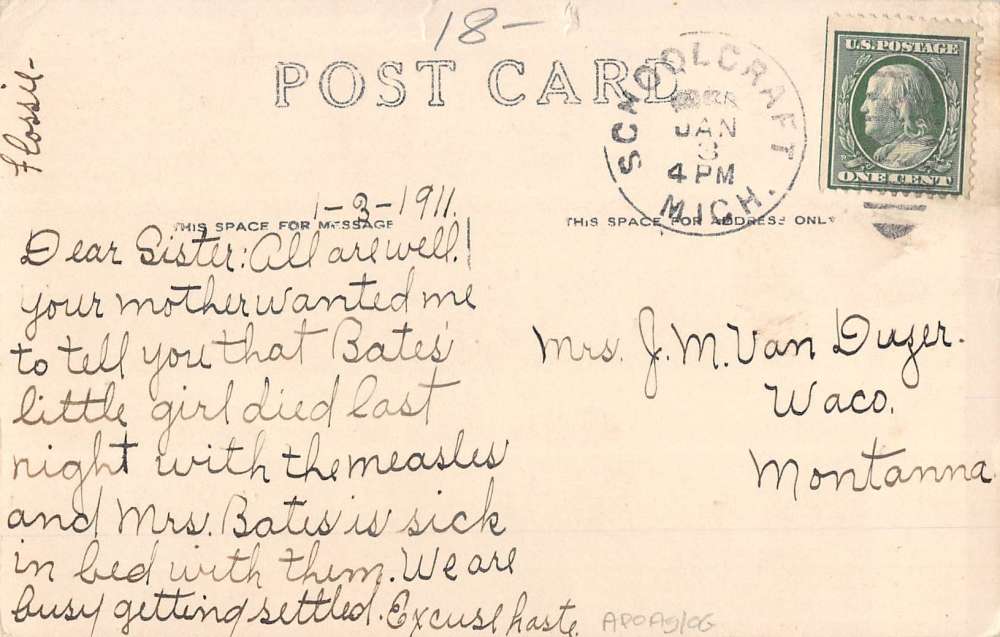 18-
POST CARD
Flossie-
SCHOOLCRAFT
JAN
3
4 PM
MICH.
U.S. POSTAGE
ONE CENT
1-3-1911.
THIS SPACE FOR MESSAGE
THIS SPACE FOR ADDRESS ONLY
Dear Sister: All are well!
your mother wanted me
to tell you that Bates'
little girl died last
night with the measles
and Mrs. Bates is sick
in bed with them. We are
busy getting settled. Excuse haste.
Mrs. J. M. Van Duzer.
Waco.
Montanna